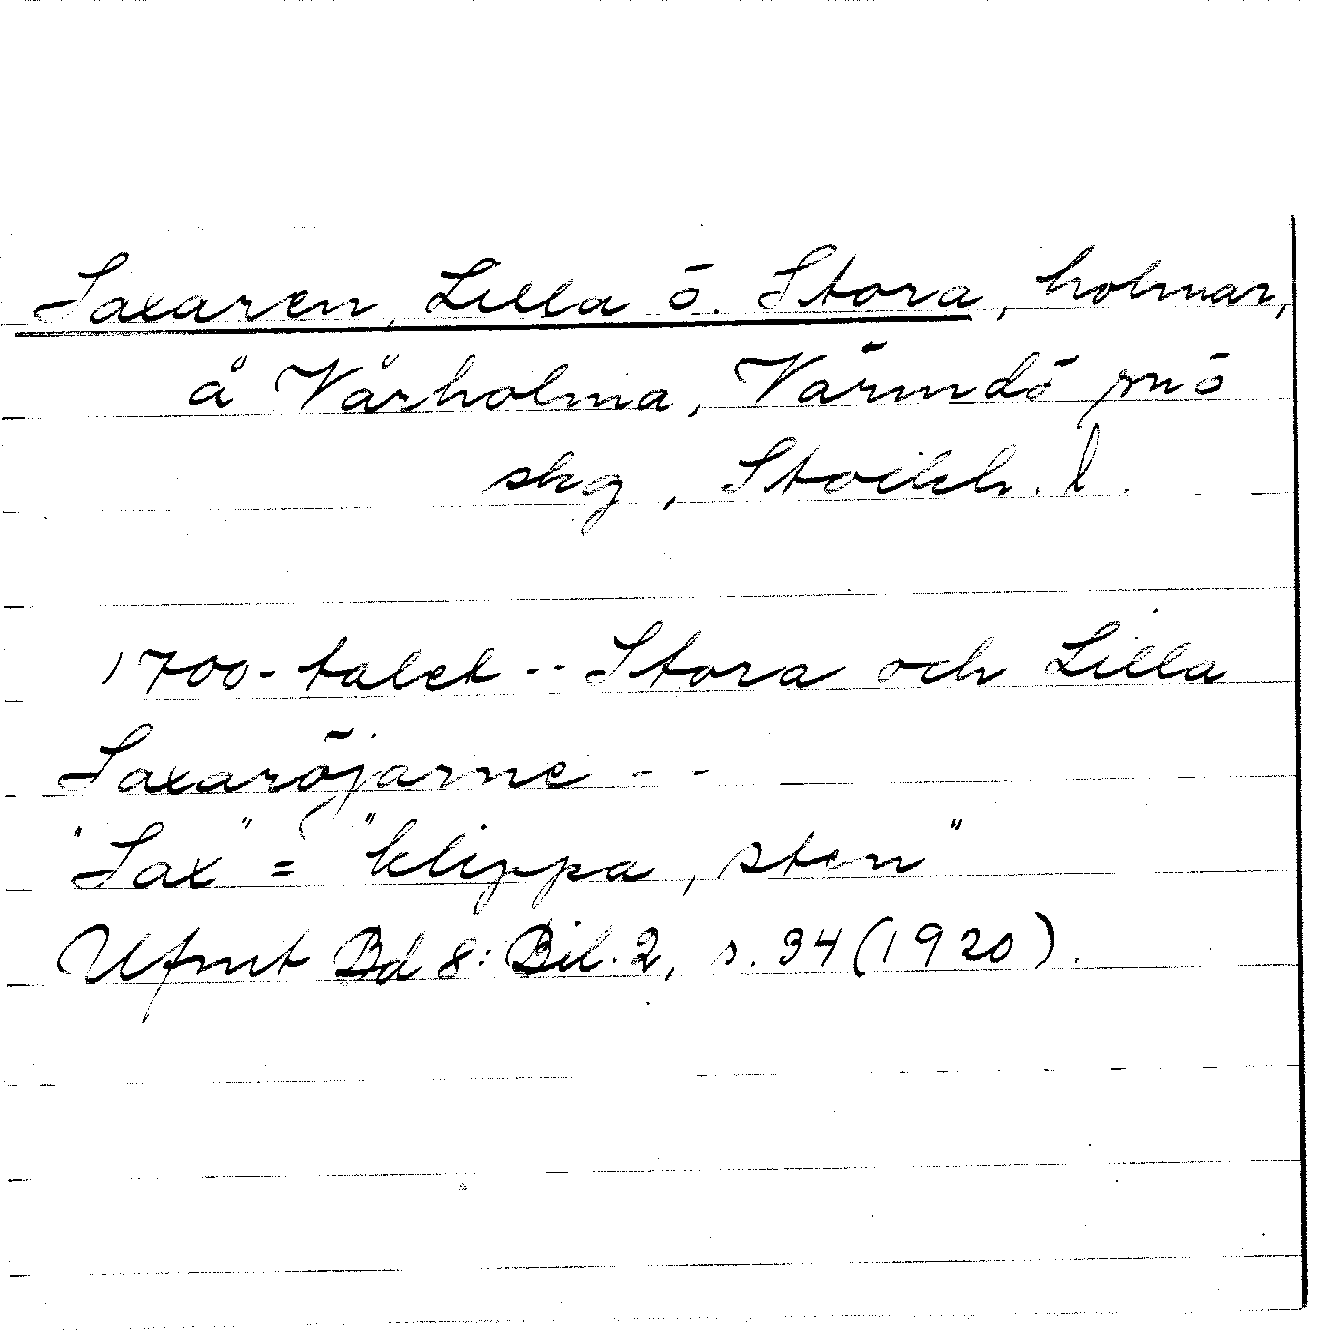 Saxaren, Lilla o. Stora, holmar,
å Vårholma, Värmdö sn o
skg, Stockh. l.
1700-talet -- Stora och Lilla
Saxaröjarne --
"Sax" = "klippa, sten"
Ufmt Bd 8: Bil. 2, s. 34 (1920).